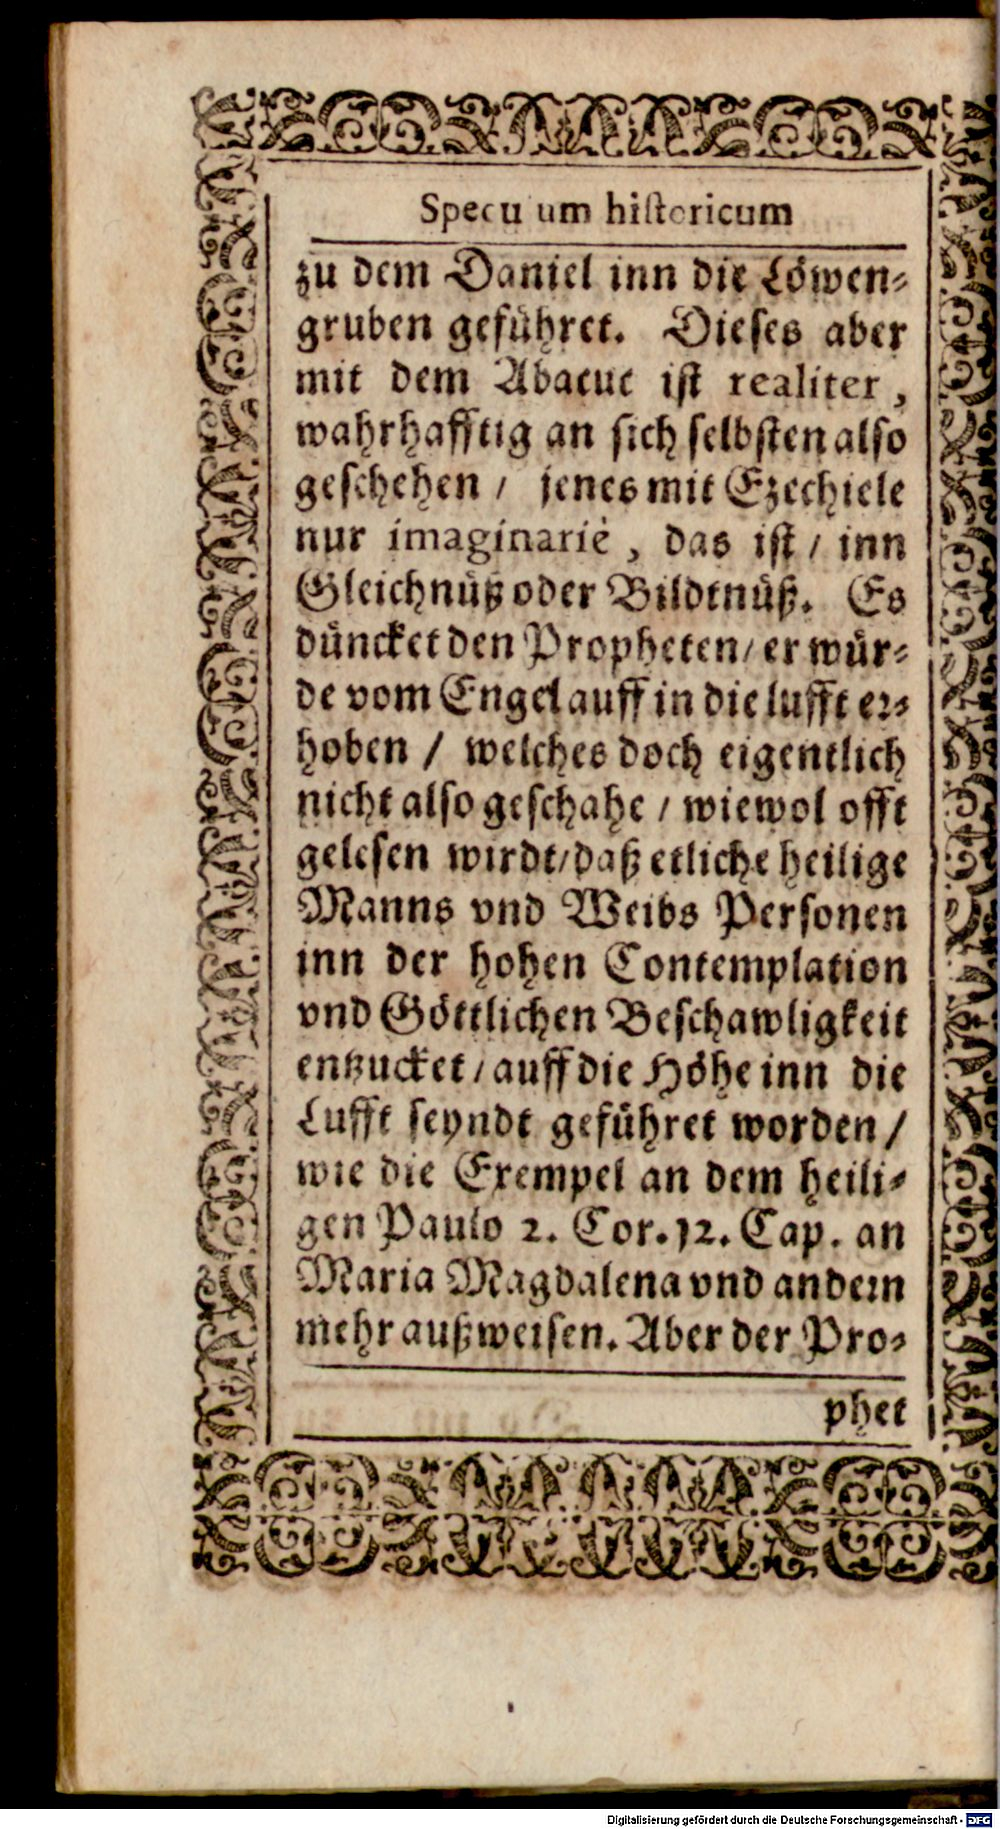 Specu um historicum
zu dem Daniel inn die Löwen-
gruben geführet. Dieses aber
mit dem Abacuc ist realiter,
wahrhafftig an sich selbsten also
geschehen / jenes mit Ezechiele
nur imaginariè, das ist / inn
Gleichnüß oder Bildtnüß. Es
düncket den Propheten / er wür-
de vom Engel auff in die lufft er-
hoben / welches doch eigentlich
nicht also geschahe / wiewol offt
gelesen wirdt / daß etliche heilige
Manns vnd Weibs Personen
inn der hohen Contemplation
vnd Göttlichen Beschawligkeit
entzucket / auff die Höhe inn die
Lufft seyndt geführet worden /
wie die Exempel an dem heili-
gen Paulo 2. Cor. 12. Cap. an
Maria Magdalena vnd andern
mehr außweisen. Aber der Pro-
phet
Digitalisierung gefördert durch die Deutsche Forschungsgemeinschaft - DFG